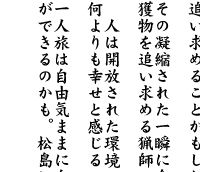 追い求めることかもし
その凝縮された一瞬に
獲物を追い求める猟師
人は開放された環境
何よりも幸せと感じる
一人旅は自由気ままに
ができるのかも。松島